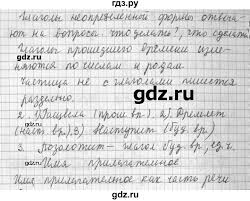 гдз.ру
Глаголы неопределённой формы отвеча-
ют на вопросы что делать?, что сделать?
Глаголы прошедшего времени изме-
няются по числам и родам.
Частица не с глаголами пишется
раздельно.
2. Расцвела (прош вр.). 2). Дремлет
(наст вр.). 3) Наступит (буд. вр.)
3. Позолотит - глагол буд. вр., ед. ч.
Имя прилагательное
Имя прилагательное как часть речи
gdz.ru
gdz.ru
gdz.ru